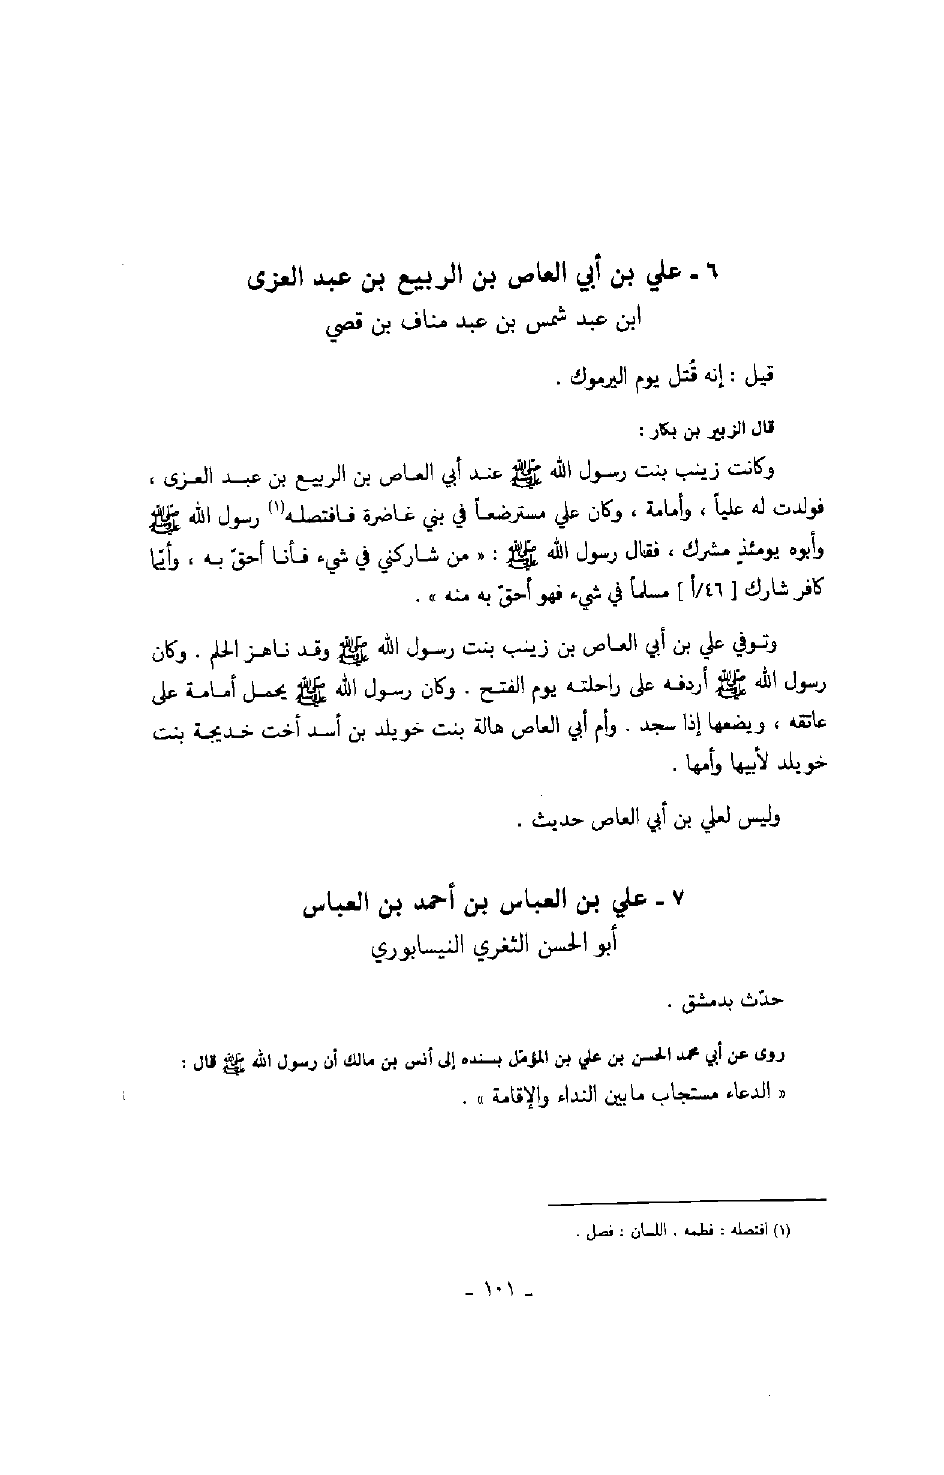 ٦ ـ علي بن أبي العاص بن الربيع بن عبد العزى
ابن عبد شمس بن عبد مناف بن قصي
قيل : إنه قُتل يوم اليرموك .
قال الزبير بن بكار :
وكانت زينب بنت رسول الله ﷺ عند أبي العاص بن الربيع بن عبد العزى ،
فولدت له علياً ، وأمامة ، وكان علي مسترضعاً في بني غاضرة فافتصله(١) رسول الله ﷺ
وأبوه يومئذٍ مشرك ، فقال رسول الله ﷺ : « من شاركني في شيء فأنا أحقّ به ، وأيّما
كافر شارك [ ٤٦/أ ] مسلماً في شيء فهو أحقّ به منه » .
وتوفي علي بن أبي العاص بن زينب بنت رسول الله ﷺ وقد ناهز الحلم . وكان
رسول الله ﷺ أردفه على راحلته يوم الفتح . وكان رسول الله ﷺ يحمل أمامة على
عاتقه ، ويضعها إذا سجد . وأم أبي العاص هالة بنت خويلد بن أسد أخت خديجة بنت
خويلد لأبيها وأمها .
وليس لعلي بن أبي العاص حديث .
٧ ـ علي بن العباس بن أحمد بن العباس
أبو الحسن الثغري النيسابوري
حدّث بدمشق .
روى عن أبي محمد الحسن بن علي بن المؤمّل بسنده إلى أنس بن مالك أن رسول الله ﷺ قال :
« الدعاء مستجاب مابين النداء والإقامة » .
(١) افتصله : فطمه . اللسان : فصل .
ـ ١٠١ ـ